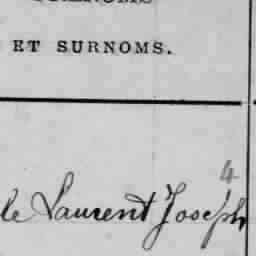 PRÉNOMS
ET SURNOMS.
4
le Laurent Joseph